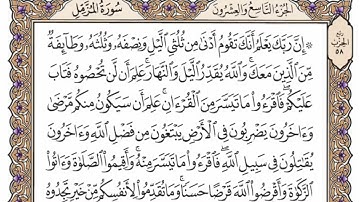 سُورَةُ المُزَّمِّل
الجُزْءُ التَّاسِعُ وَالعِشْرُونَ
ربع
الحزب
٥٨
۞ إِنَّ رَبَّكَ يَعْلَمُ أَنَّكَ تَقُومُ أَدْنَىٰ مِن ثُلُثَيِ ٱلَّيْلِ وَنِصْفَهُۥ وَثُلُثَهُۥ وَطَآئِفَةٌ
مِّنَ ٱلَّذِينَ مَعَكَۚ وَٱللَّهُ يُقَدِّرُ ٱلَّيْلَ وَٱلنَّهَارَۚ عَلِمَ أَن لَّن تُحْصُوهُ فَتَابَ
عَلَيْكُمْۖ فَٱقْرَءُوا۟ مَا تَيَسَّرَ مِنَ ٱلْقُرْءَانِۚ عَلِمَ أَن سَيَكُونُ مِنكُم مَّرْضَىٰ
وَءَاخَرُونَ يَضْرِبُونَ فِى ٱلْأَرْضِ يَبْتَغُونَ مِن فَضْلِ ٱللَّهِۙ وَءَاخَرُونَ
يُقَٰتِلُونَ فِى سَبِيلِ ٱللَّهِۖ فَٱقْرَءُوا۟ مَا تَيَسَّرَ مِنْهُۚ وَأَقِيمُوا۟ ٱلصَّلَوٰةَ وَءَاتُوا۟
ٱلزَّكَوٰةَ وَأَقْرِضُوا۟ ٱللَّهَ قَرْضًا حَسَنًاۚ وَمَا تُقَدِّمُوا۟ لِأَنفُسِكُم مِّنْ خَيْرٍ تَجِدُوهُ